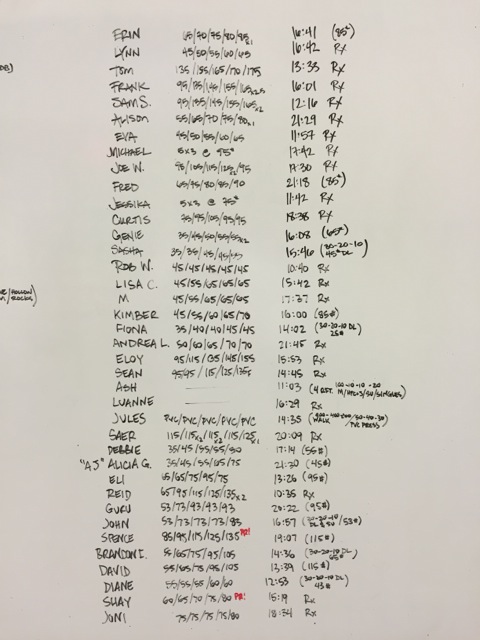 ERIN 65/70/75/80/85x1 16:41 (85#)
LYNN 45/50/55/60/65 16:42 RX
DB)
TOM 135/155/165/70/175 13:33 RX
FRANK 95/135/145/155/165x2.5 16:01 RX
SAM S. 95/135/145/155/165x2 12:16 RX
ALISON 55/65/70/75/80x1 21:29 RX
EVA 45/50/55/60/65 11:57 RX
MICHAEL 5x3 @ 95# 17:42 RX
JOE W. 95/105/115/125x2/95 17:30 RX
FRED 65/75/80/85/90 21:18 (85#)
JESSIKA 5x3 @ 75# 11:42 RX
CURTIS 75/95/105/95/95 18:38 RX
GENIE 35/45/50/55/55x2 16:08 (65#)
SASHA 35/35/45/45/55 15:46 (30-20-10 45# DL)
ROB W. 45/45/45/45/45 10:40 RX
LISA C. 45/55/65/65/65 15:42 RX
M 45/55/65/65/65 17:37 RX
KIMBER 45/55/60/65/70 16:00 (85#)
FIONA 35/40/40/45/45 14:02 (30-20-10 DL 25#)
ANDREA L. 50/60/65/70/70 21:45 RX
ELOY 95/115/135/145/155 15:53 RX
SEAN 95/95/115/125/135 14:45 RX
ASH 11:03
LUANNE 16:29 RX
JULES PVC/PVC/PVC/PVC/PVC 14:35 (400-400-200/50-40-30 WALK /PVC PRESS)
SAER 115/115x3/115x2/115/125x1 20:09 RX
DEBBIE 35/45/55/55/50 17:14 (55#)
"AJ" ALICIA G. 35/45/55/65/75 21:30 (45#)
ELI 65/65/75/95/75 13:26 (95#)
REID 65/95/115/125/135x2 10:35 RX
GURU 53/73/93/93/93 20:22 (95#)
JOHN 53/73/73/73/83 16:57
SPENCE 85/95/115/125/135 PR! 19:07 (115#)
BRANDON I. 55/65/75/95/105 14:36 (30-20-10 DL 65#)
DAVID 55/65/75/95/105 13:39 (115#)
DIANE 55/55/55/60/60 12:53 (30-20-10 DL 43#)
SHAY 60/65/70/75/80 PR! 15:19 RX
JONI 75/75/75/75/80 18:34 RX